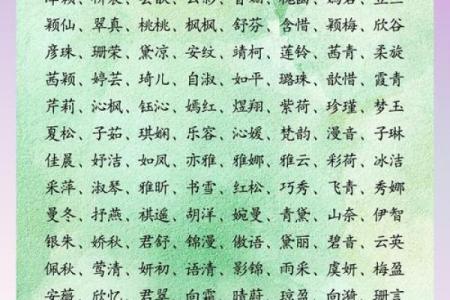 颖仙、翠真、桃桃、枫枫、舒芬、含惜、颖梅、欣谷
彦珠、珊荣、黛凉、安纹、靖柯、莲铃、茜青、柔旋
茜颖、婷芸、琦儿、自淑、如平、璐珠、歆惜、霞青
芹莉、沁枫、钰沁、嫣红、煜翔、紫荷、珍瑾、梦玉
夏松、子茹、琪娴、乐容、沁媛、梵韵、漫音、子琳
佳晨、妤洁、如凤、亦雅、雅娜、雅云、彩荷、冰洁
采萍、淑琴、雅昕、书雪、红松、巧秀、飞青、秀娜
曼冬、抒燕、祺遥、胡洋、婉曼、青黛、山奈、伊智
银朱、娇秋、君舒、锦漫、傲语、黛丽、碧音、云英
佩秋、莺清、妍初、语清、影锦、雨采、虞妍、梅盈
安薇、欣忆、君翠、向霜、晴蔚、琼盈、向漪、珊言